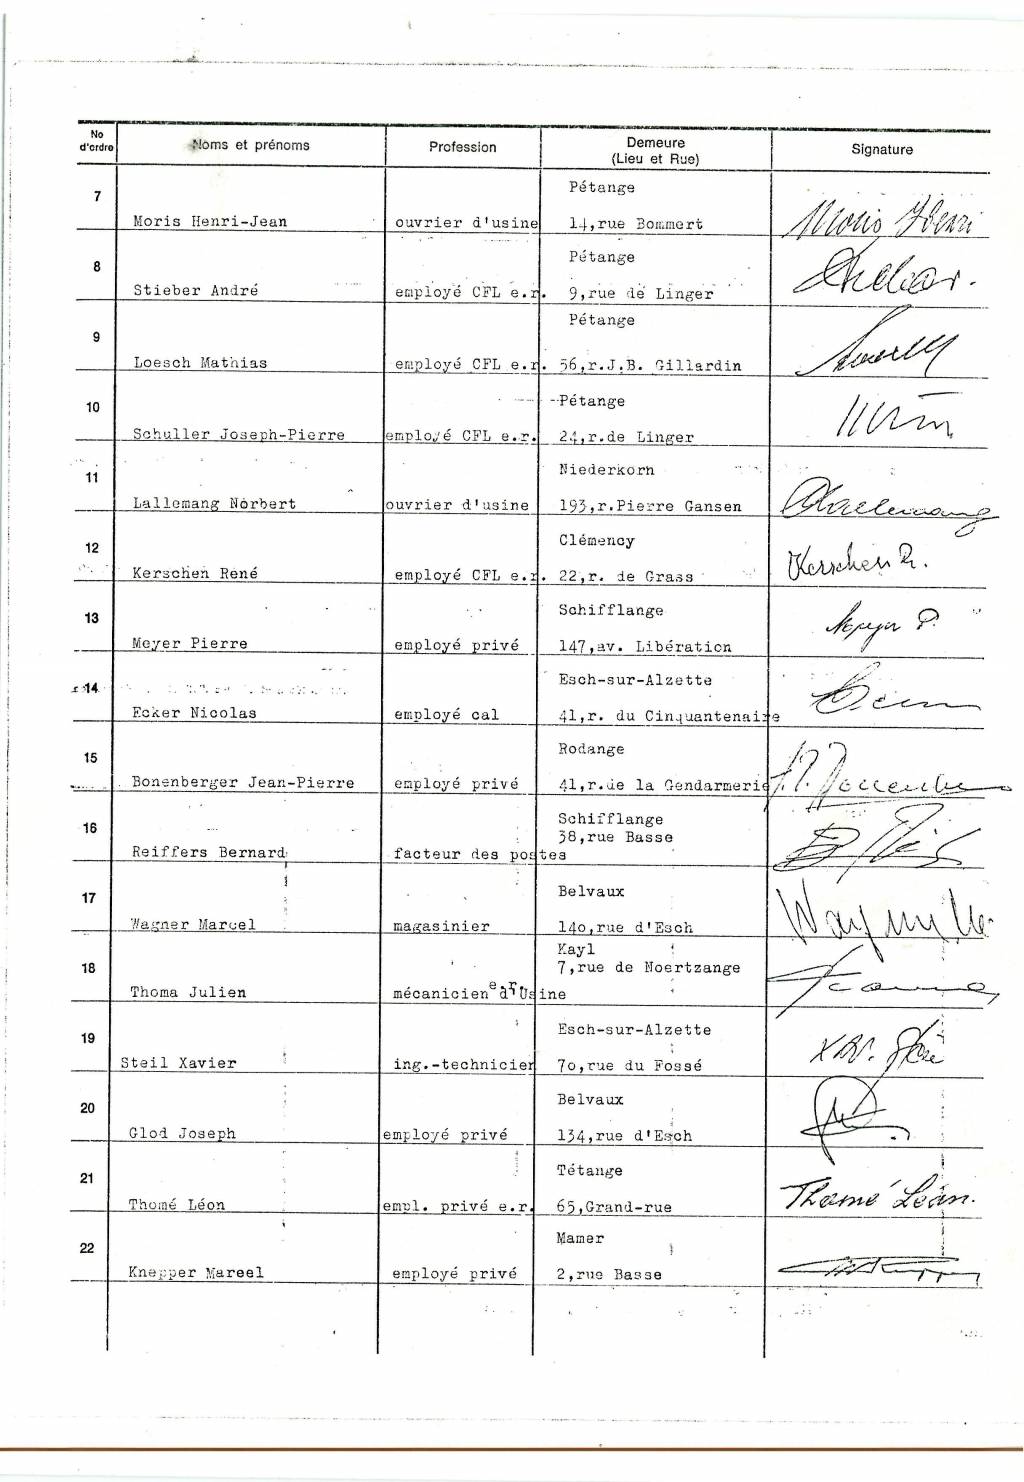 No d'ordre Noms et prénoms Profession Demeure (Lieu et Rue) Signature
7 Pétange
Moris Henri-Jean ouvrier d'usine 14,rue Bommert Moris Henri
8 Pétange
Stieber André employé CFL e.r. 9,rue de Linger
9 Pétange
Loesch Mathias employé CFL e.r. 56,r.J.B. Gillardin
10 Pétange
Schuller Joseph-Pierre employé CFL e.r. 24,r.de Linger
11 Niederkorn
Lallemang Norbert ouvrier d'usine 193,r.Pierre Gansen Lallemang
12 Clémency
Kerschen René employé CFL e.r. 22,r. de Grass Kerschen R.
13 Schifflange
Meyer Pierre employé privé 147,av. Libération Meyer P.
14 Esch-sur-Alzette
Ecker Nicolas employé cal 41,r. du Cinquantenaire
15 Rodange
Bonenberger Jean-Pierre employé privé 41,r.de la Gendarmerie
16 Schifflange
38,rue Basse
Reiffers Bernard facteur des postes
17 Belvaux
Wagner Marcel magasinier 140,rue d'Esch
18 Kayl
7,rue de Noertzange
Thoma Julien mécanicien e.r. d'Usine
19 Esch-sur-Alzette
Steil Xavier ing.-technicier 70,rue du Fossé
20 Belvaux
Glod Joseph employé privé 134,rue d'Esch
21 Tétange
Thomé Léon empl. privé e.r. 65,Grand-rue Thomé Léon.
22 Mamer
Knepper Marcel employé privé 2,rue Basse